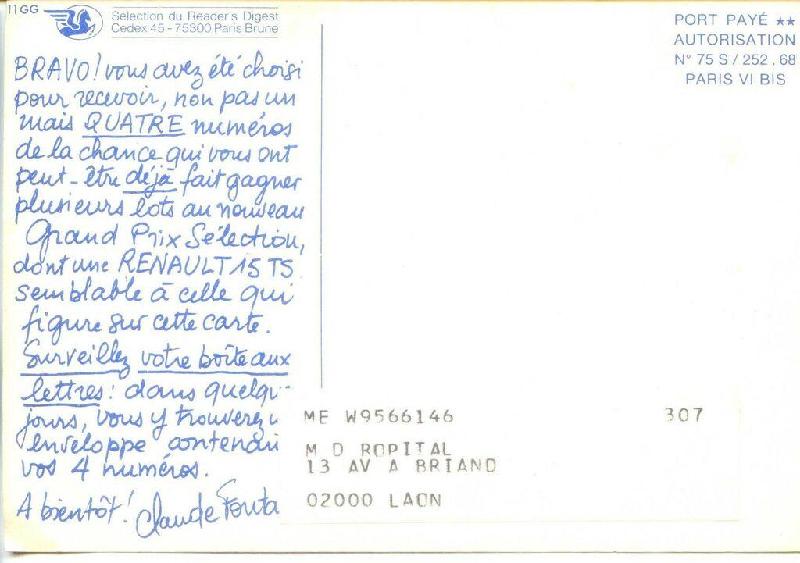 11GG
Sélection du Reader's Digest
Cedex 45 - 75300 Paris Brune
PORT PAYÉ ★★
AUTORISATION
N° 75 S / 252.68
PARIS VI BIS
BRAVO! vous avez été choisi
pour recevoir, non pas un
mais QUATRE numéros
de la chance qui vous ont
peut-être déjà fait gagner
plusieurs lots au nouveau
Grand Prix Sélection,
dont une RENAULT 15 TS
semblable à celle qui
figure sur cette carte.
Surveillez votre boîte aux
lettres: dans quelqu
jours, vous y trouverez
enveloppe contenan
vos 4 numéros.
A bientôt! Claude Fonta
ME W9566146 307
M D ROPITAL
13 AV A BRIAND
02000 LAON